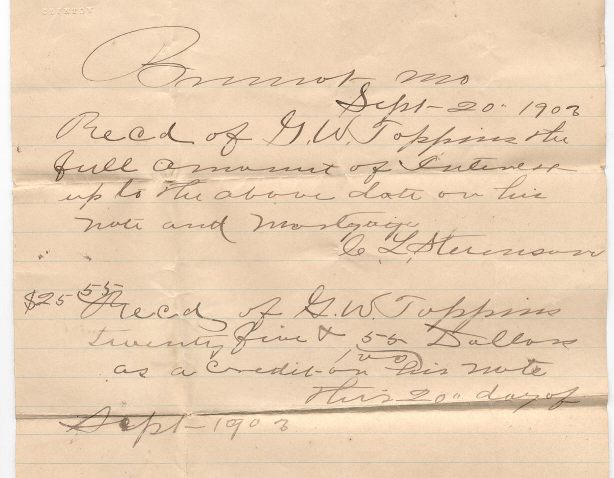 Brunot Mo
Sept- 20" 1903
Recd of G. W. Toppins the
full amount of Interest
up to the above date on his
note and Mortgage
C. L. Stevenson
$25 55 Recd of G. W. Toppins
twenty five & 55/100 Dollars
as a credit on his note
this 20" day of
Sept- 1903